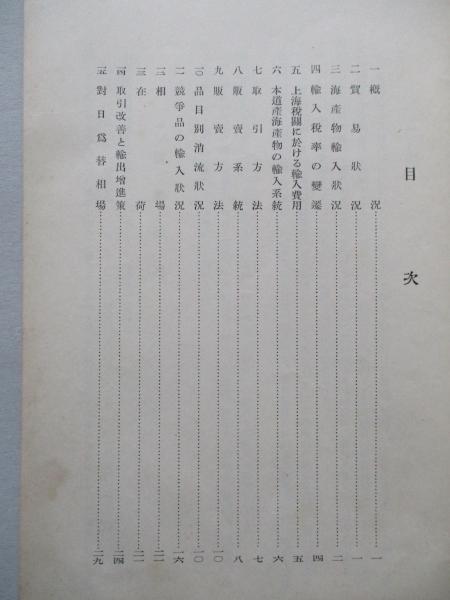 目次
一 概況……一
二 貿易狀況……一
三 海產物輸入狀況……二
四 輸入稅率の變遷……四
五 上海稅關に於ける輸入費用……五
六 本道產海產物の輸入系統……六
七 取引方法……七
八 販賣系統……八
九 販賣方法……一〇
一〇 品目別消流狀況……一〇
一一 競爭品の輸入狀況……一六
一二 相場……二一
一三 在荷……二一
一四 取引改善と輸出增進策……二四
一五 對日爲替相場……二九